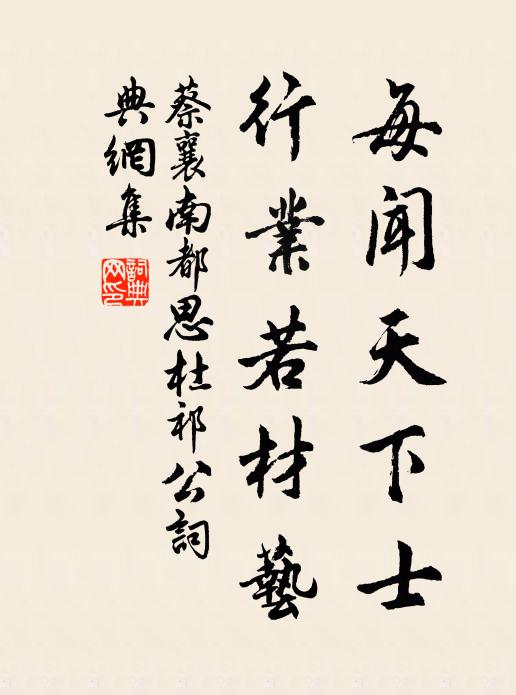 每聞天下士
行業若材藝
蔡襄南都思杜祁公詞
典網集
詞典網印